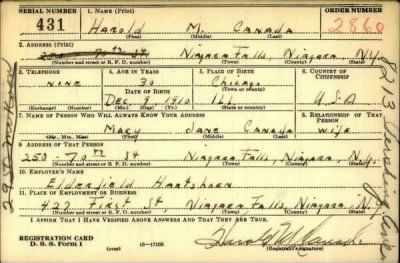 SERIAL NUMBER 1. NAME (Print) ORDER NUMBER
431 Harold M. Canada 2860
(First) (Middle) (Last)
2. ADDRESS (Print)
70th St Niagara Falls, Niagara, N.Y.
(Number and street or R. F. D. number) (Town) (County) (State)
3. TELEPHONE 4. AGE IN YEARS 5. PLACE OF BIRTH 6. COUNTRY OF CITIZENSHIP
none 30 Chicago
DATE OF BIRTH
Dec. 9, 1910 Ill. U.S.A
(Exchange) (Number) (Mo.) (Day) (Yr.) (State or country)
7. NAME OF PERSON WHO WILL ALWAYS KNOW YOUR ADDRESS 8. RELATIONSHIP OF THAT PERSON
Mary Jane Canada wife
(Mr., Mrs., Miss) (First) (Middle) (Last)
9. ADDRESS OF THAT PERSON
250 - 70th St Niagara Falls, Niagara, N.Y.
(Number and street or R. F. D. number) (Town) (County) (State)
10. EMPLOYER'S NAME
Elderfield Hartshorn
11. PLACE OF EMPLOYMENT OR BUSINESS
427 First St Niagara Falls, Niagara, N.Y.
(Number and street or R. F. D. number) (Town) (County) (State)
I AFFIRM THAT I HAVE VERIFIED ABOVE ANSWERS AND THAT THEY ARE TRUE.
REGISTRATION CARD
D. S. S. Form 1 (over) 16—17105
(Registrant's signature)